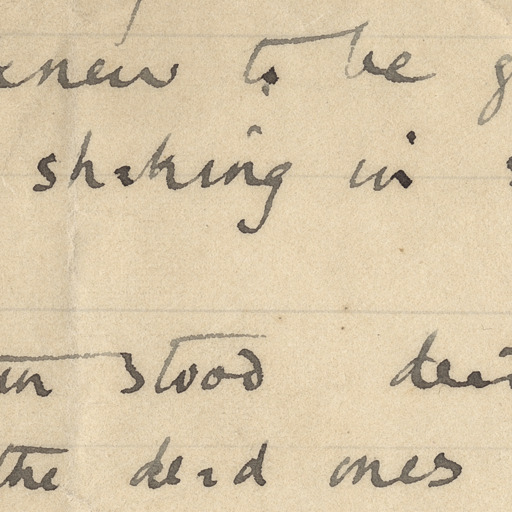 knew to be
shaking in
stood dead
the dead ones